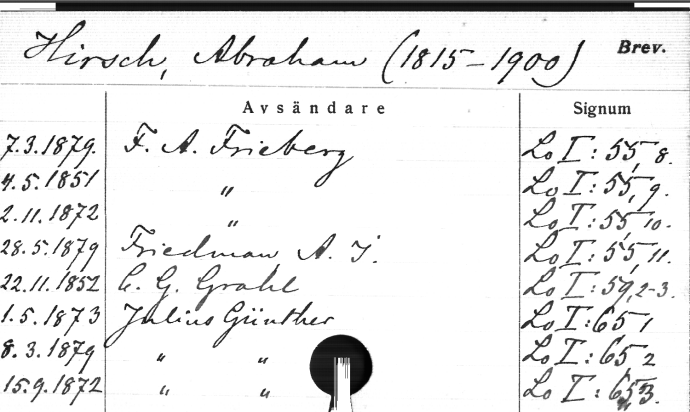 Hirsch, Abraham (1815-1900) Brev.
Avsändare Signum
7.3.1879. F. A. Frieberg Lo I: 55, 8.
4.5.1851 " Lo I: 55, 9.
2.11.1872 " Lo I: 55, 10.
28.5.1879 Friedman A. J. Lo I: 55, 11.
22.11.1852 C. G. Grahl Lo I: 59, 2-3.
1.5.1873 Julius Günther Lo I: 65 1
8.3.1879 " " Lo I: 65 2
15.9.1872 " " Lo I: 65, 3.